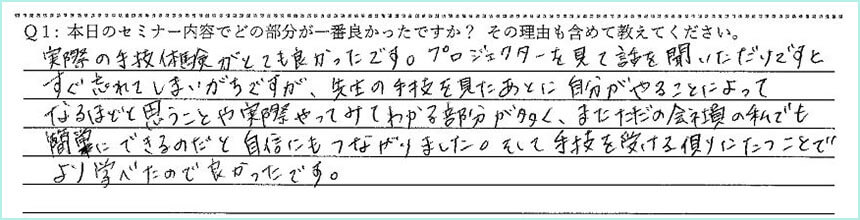 Q1：本日のセミナー内容でどの部分が一番良かったですか？ その理由も含めて教えてください。
実際の手技体験がとても良かったです。プロジェクターを見て話を聞いただけですと
すぐ忘れてしまいがちですが、先生の手技を見たあとに自分がやることによって
なるほどと思うことや実際やってみてわかる部分が多く、またただの会社員の私でも
簡単にできるのだと自信にもつながりました。そして手技を受ける側にたつことで
より学べたので良かったです。